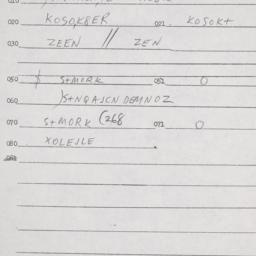 020 KOSOKBER 021. KOSOK+
030 ZEEN // ZEN
050 S+MORK 052 O
060 S+NQAJCNDEMNOZ
070 S+MORK (268 072 O
080 XOLEJLE